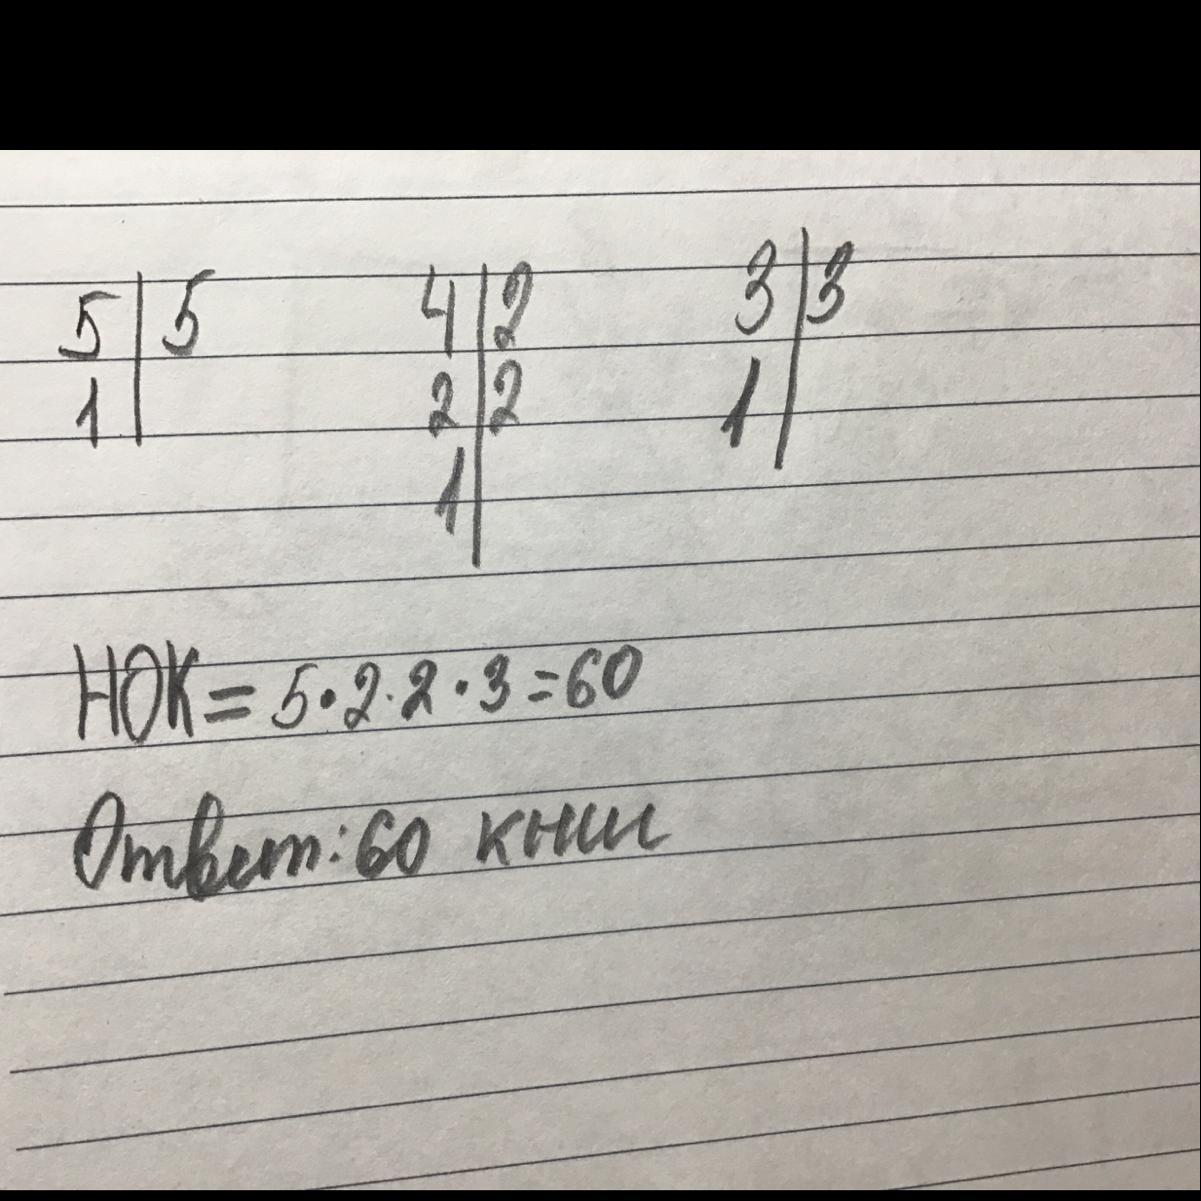 5 | 5 4 | 2 3 | 3
1 | 2 | 2 1 |
1 |
НОК = 5 · 2 · 2 · 3 = 60
Ответ: 60 книг